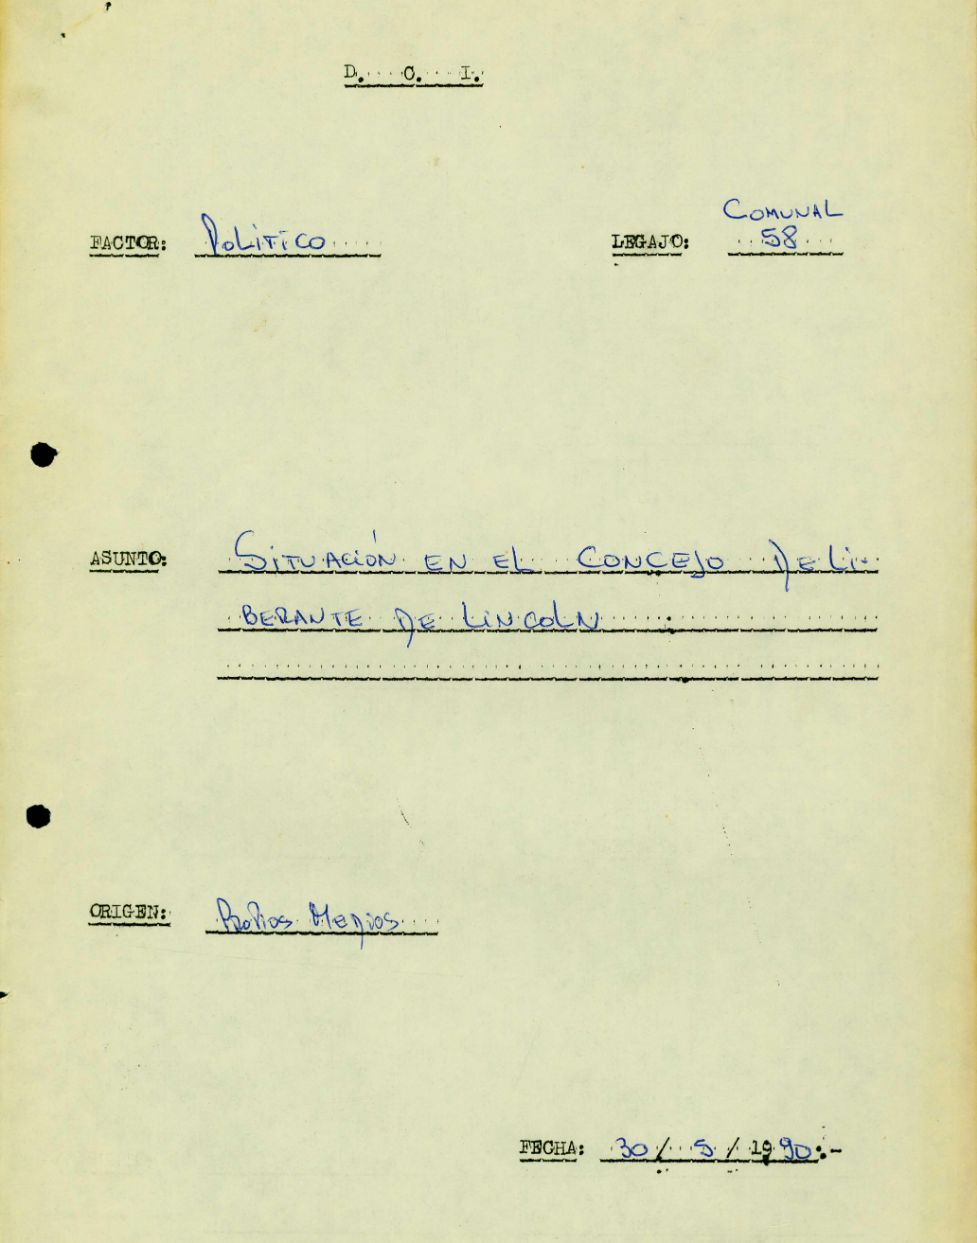 D. C. I.
COMUNAL
FACTOR: POLITICO LEGAJO: 58
ASUNTO: SITUACIÓN EN EL CONCEJO DELI-
BERANTE DE LINCOLN
ORIGEN: PROPIOS MEDIOS
FECHA: 30/ 5 / 1990.-